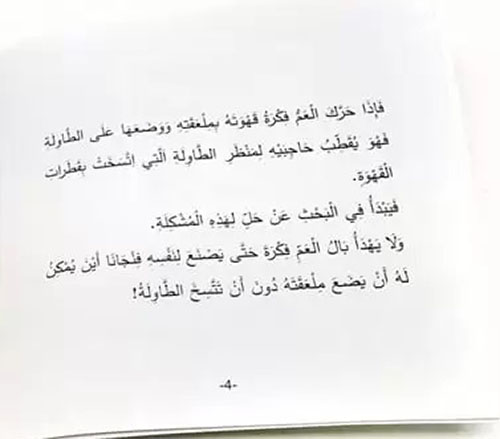 فَإِذَا حَرَّكَ الْعَمُّ فِكْرَةُ قَهْوَتَهُ بِمِلْعَقَتِهِ وَوَضَعَهَا عَلَى الطَّاوِلَةِ
فَهُوَ يُقَطِّبُ حَاجِبَيْهِ لِمَنْظَرِ الطَّاوِلَةِ الَّتِي اتَّسَخَتْ بِقَطَرَاتِ
الْقَهْوَةِ.
فَيَبْدَأُ فِي الْبَحْثِ عَنْ حَلٍّ لِهَذِهِ الْمُشْكِلَةِ.
وَلَا يَهْدَأُ بَالُ الْعَمِّ فِكْرَةَ حَتَّى يَصْنَعَ لِنَفْسِهِ فِنْجَانًا أَيْنَ يُمْكِنُ
لَهُ أَنْ يَضَعَ مِلْعَقَتَهُ دُونَ أَنْ تَتَّسِخَ الطَّاوِلَةُ!
-4-